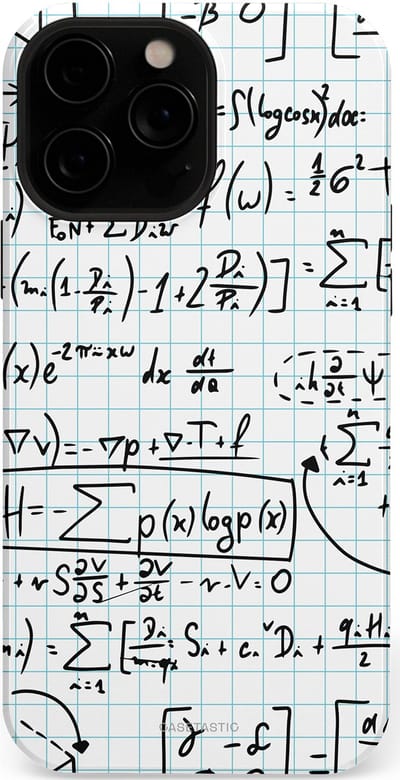 -β 0
= ∫(logcosx)²dx=
f(w) = 1/2 6² +
E₀N+ΣDᵢw
(mᵢ(1-Dᵢ/Pᵢ)-1+2Dᵢ/Pᵢ)] = Σⁿᵢ₌₁ [
(x)e^-2πixw dx dt/dQ iħ∂/∂t Ψ
∇v)=-∇p+∇·T+f
+ Σⁿᵢ₌₁
H=-Σp(x)logp(x)
+rS∂V/∂S+∂V/∂t-r·V=0
) = Σⁿᵢ₌₁ [Dᵢ/mᵢqᵢ Sᵢ+cᵢᵛDᵢ+qᵢHᵢ/2
CASETASTIC